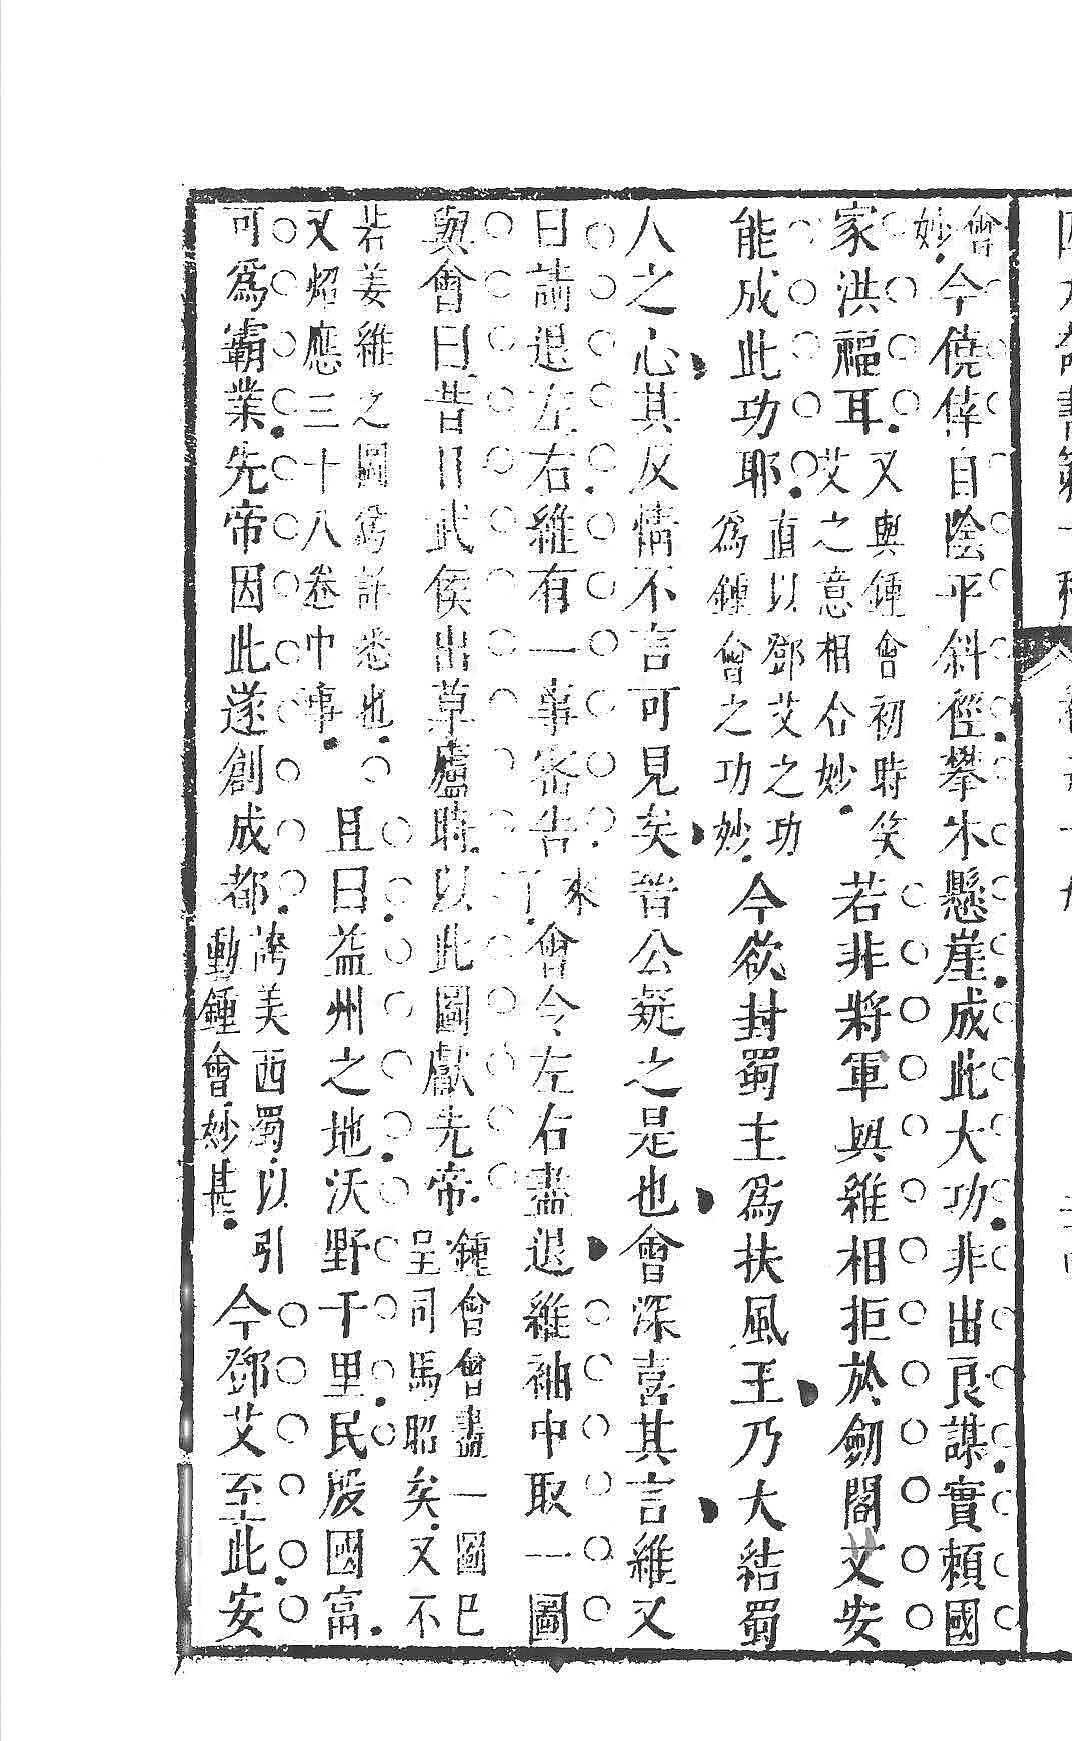 會妙今僥倖自陰平斜徑攀木懸崖成此大功非出良謀實賴國
家洪福耳又與鍾會初時笑艾之意相合妙若非將軍與維相拒於劒閣艾安
能成此功耶直以鄧艾之功爲鍾會之功妙今欲封蜀主爲扶風王乃大結蜀
人之心其反情不言可見矣晉公疑之是也會深喜其言維又
曰請退左右維有一事密告來了會令左右盡退維袖中取一圖
與會曰昔日武侯出草廬時以此圖獻先帝鍾會會畫一圖已呈司馬昭矣又不
若姜維之圖爲詳悉也又炤應三十八卷中事且曰益州之地沃野千里民殷國富
可爲霸業先帝因此遂創成都誇美西蜀以引動鍾會妙甚今鄧艾至此安